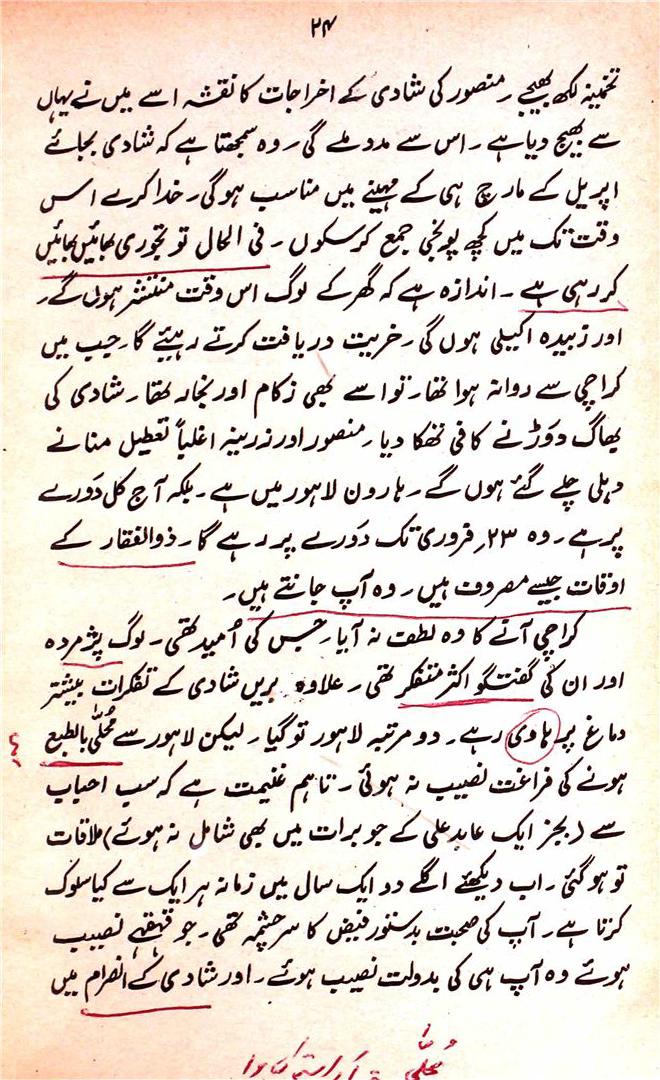 ۲۴
تخمینہ لکھ بھیجے۔ منصور کی شادی کے اخراجات کا نقشہ اسے میں نے یہاں
سے بھیج دیا ہے۔ اس سے مدد ملے گی۔ وہ سمجھتا ہے کہ شادی بجائے
اپریل کے مارچ ہی کے مہینے میں مناسب ہوگی۔ خدا کرے اس
وقت تک میں کچھ پونجی جمع کر سکوں۔ فی الحال تو تجوری بھائیں بھائیں
کر رہی ہے۔ اندازہ ہے کہ گھر کے لوگ اس وقت منتشر ہوں گے۔
اور زبیدہ اکیلی ہوں گی۔ خریت دریافت کرتے رہیئے گا۔ جب میں
کراچی سے روانہ ہوا تھا۔ تو اسے بھی زکام اور بخار تھا۔ شادی کی
بھاگ دَوڑ نے کافی تھکا دیا۔ منصور اور زرینہ اغلباً تعطیل منانے
دہلی چلے گئے ہوں گے۔ ہارون لاہور میں ہے۔ بلکہ آج کل دَورے
پر ہے۔ وہ ۲۳؍ فروری تک دَورے پر رہے گا۔ ذوالفقار کے
اوقات جیسے مصروف ہیں۔ وہ آپ جانتے ہیں۔
کراچی آنے کا وہ لطف نہ آیا۔ جس کی اُمید تھی۔ لوگ پژمردہ
اور ان کی گفتگو اکثر متفکر تھی۔ علاوہ بریں شادی کے تفکرات بیشتر
دماغ پر ہاوی رہے۔ دو مرتبہ لاہور تو گیا۔ لیکن لاہور سے مُحلّٰی بالطبع
ہونے کی فراغت نصیب نہ ہوئی۔ تاہم غنیمت ہے کہ سب احباب
سے (بجز ایک عابد علی کے جو برات میں بھی شامل نہ ہوئے) ملاقات
تو ہوگئی۔ اب دیکھئے اگلے دو ایک سال میں زمانہ ہر ایک سے کیا سلوک
کرتا ہے۔ آپ کی صحبت بدستور فیض کا سرچشمہ تھی۔ جو قہقہے نصیب
ہوئے وہ آپ ہی کی بدولت نصیب ہوئے۔ اور شادی کے انصرام میں
مُحلّٰی